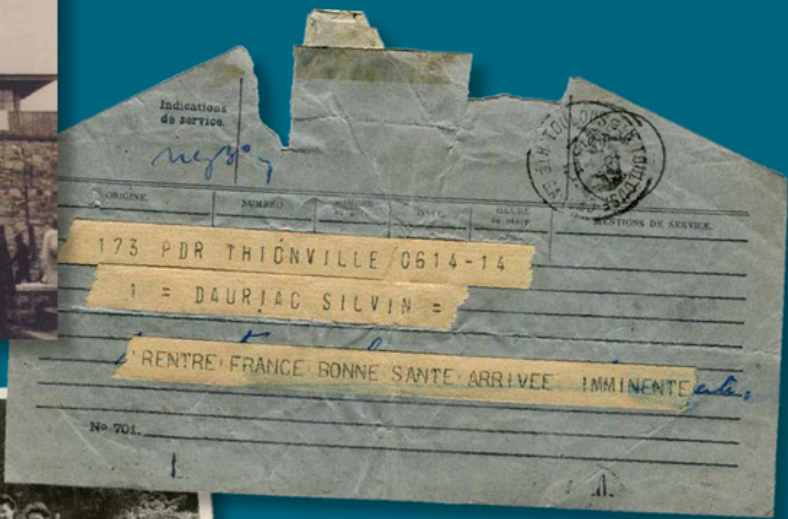 Indications
de service.
ORIGINE. NUMÉRO. DATE. HEURE MENTIONS DE SERVICE.
173 PDR THIONVILLE 0614-14
1 = DAURIAC SILVIN =
RENTRE FRANCE BONNE SANTE ARRIVEE IMMINENTE
No 701.